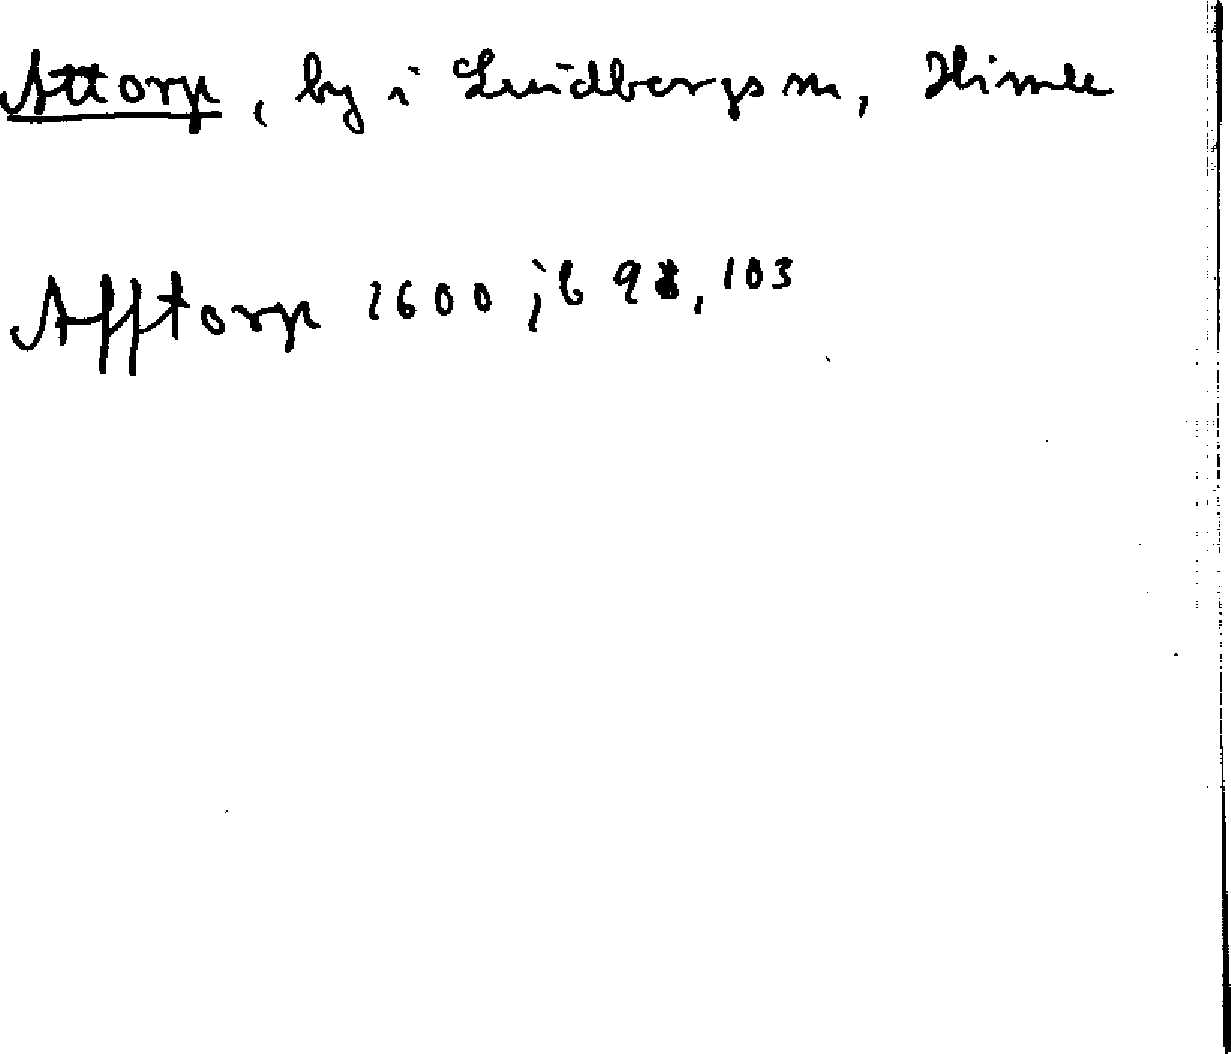 Attorp, by i Lindbergs sn, Himle
Afftorp 1600 jb 98, 103